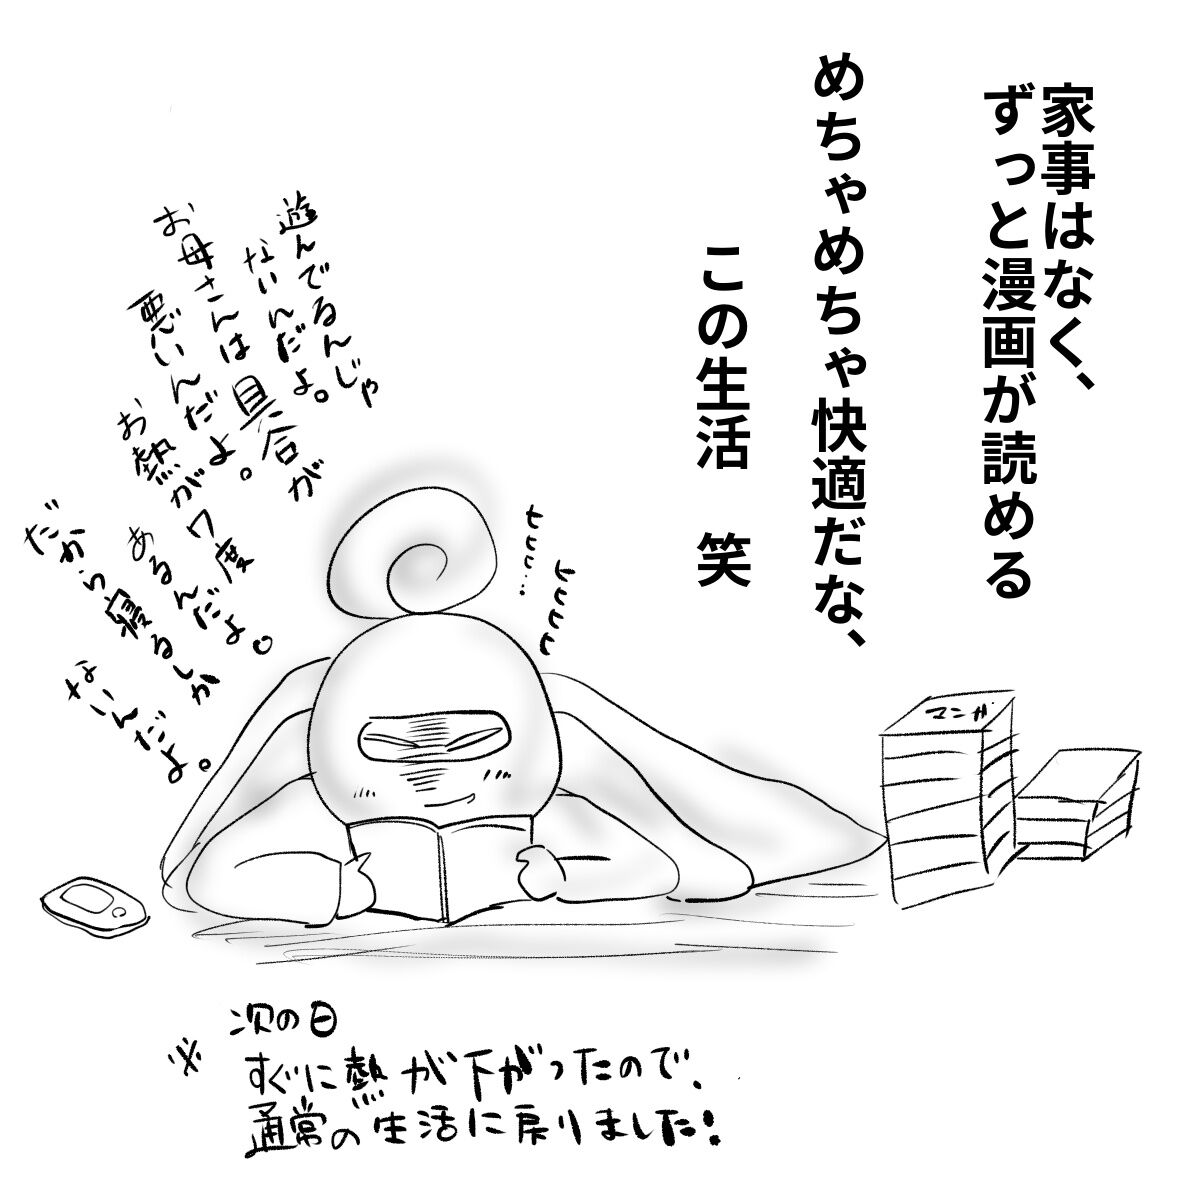 家事はなく、
ずっと漫画が読める
めちゃめちゃ快適だな、
この生活 笑
遊んでるんじゃ
ないんだよ。
お母さんは具合が
悪いんだよ。
お熱が7度
あるんだよ。
だから寝るしか
ないんだよ。
ヒヒヒ…
ヒヒヒヒ
マンガ
※次の日
すぐに熱が下がったので、
通常の生活に戻りました!